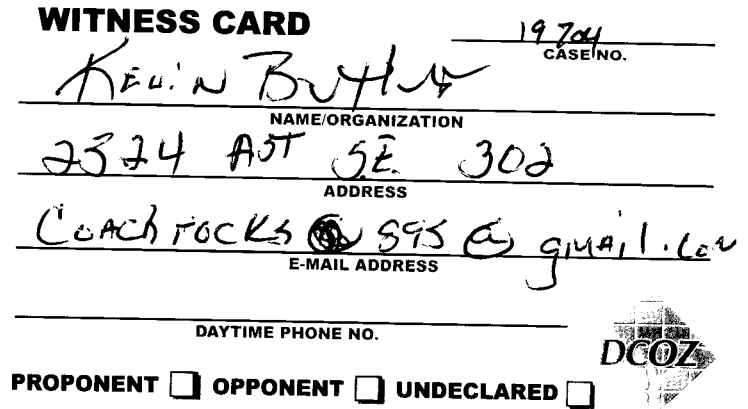 WITNESS CARD
19704
CASE NO.
Kevin Butler
NAME/ORGANIZATION
2324 A ST S.E. 302
ADDRESS
Coach rocks 895 @ gmail.com
E-MAIL ADDRESS
DAYTIME PHONE NO.
DCOZ
PROPONENT OPPONENT UNDECLARED